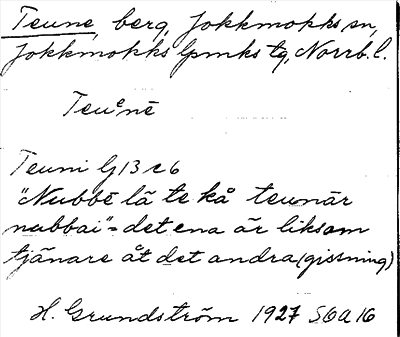 Teune, berg, Jokkmokks sn,
Jokkmokks lpmks tg, Norrb. l.
Teuᵉnē
Teuni G13 c6
"Nubbē lā te kå teunār
nubbai" = det ena är liksom
tjänare åt det andra (gissning)
H. Grundström 1927 S6a16